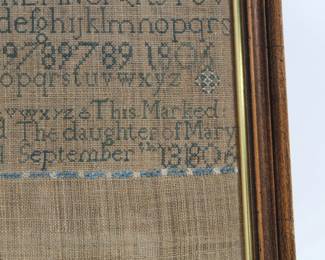 defghijklmnopqrs
89789 180
opqrstuvwxyz
vwxyz This Marked
The daughter of Mary
September th 131806